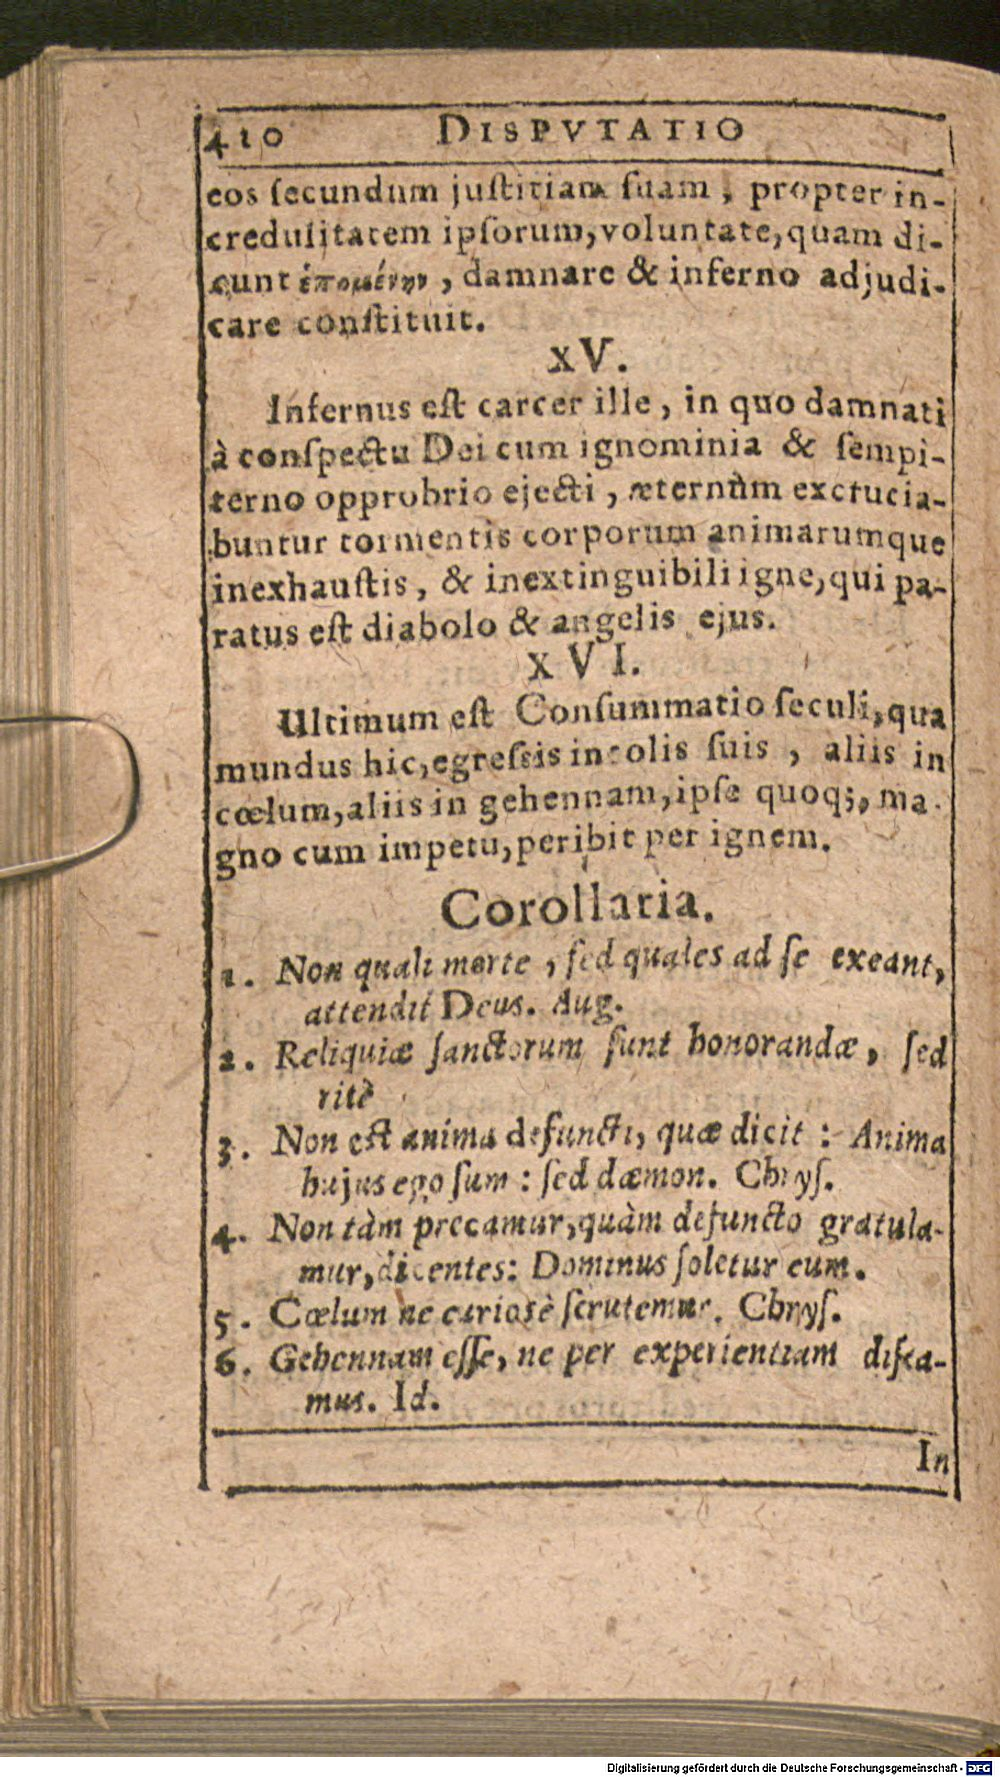 410 DISPVTATIO
eos ſecundum juſtitiam ſuam, propter in-
credulitatem ipſorum, voluntate, quam di-
cunt ἑπομένην, damnare & inferno adjudi-
care conſtituit.
XV.
Infernus eſt carcer ille, in quo damnati
à conſpectu Dei cum ignominia & ſempi-
terno opprobrio ejecti, æternùm excrucia-
buntur tormentis corporum animarumque
inexhauſtis, & inextinguibili igne, qui pa-
ratus eſt diabolo & angelis ejus.
XVI.
Ultimum eſt Conſummatio ſeculi, qua
mundus hic, egreſsis incolis ſuis, aliis in
cœlum, aliis in gehennam, ipſe quoq;, ma-
gno cum impetu, peribit per ignem.
Corollaria.
1. Non quali morte, ſed quales ad ſe exeant,
attendit Deus. Aug.
2. Reliquiæ ſanctorum ſunt honorandæ, ſed
ritè
3. Non eſt anima defuncti, quæ dicit: Anima
hujus ego ſum: ſed dæmon. Chryſ.
4. Non tàm precamur, quàm defuncto gratula-
mur, dicentes: Dominus ſoletur eum.
5. Cœlum ne curiosè ſcrutemur. Chryſ.
6. Gehennam eſſe, ne per experientiam diſca-
mus. Id.
In
Digitalisierung gefördert durch die Deutsche Forschungsgemeinschaft - DFG